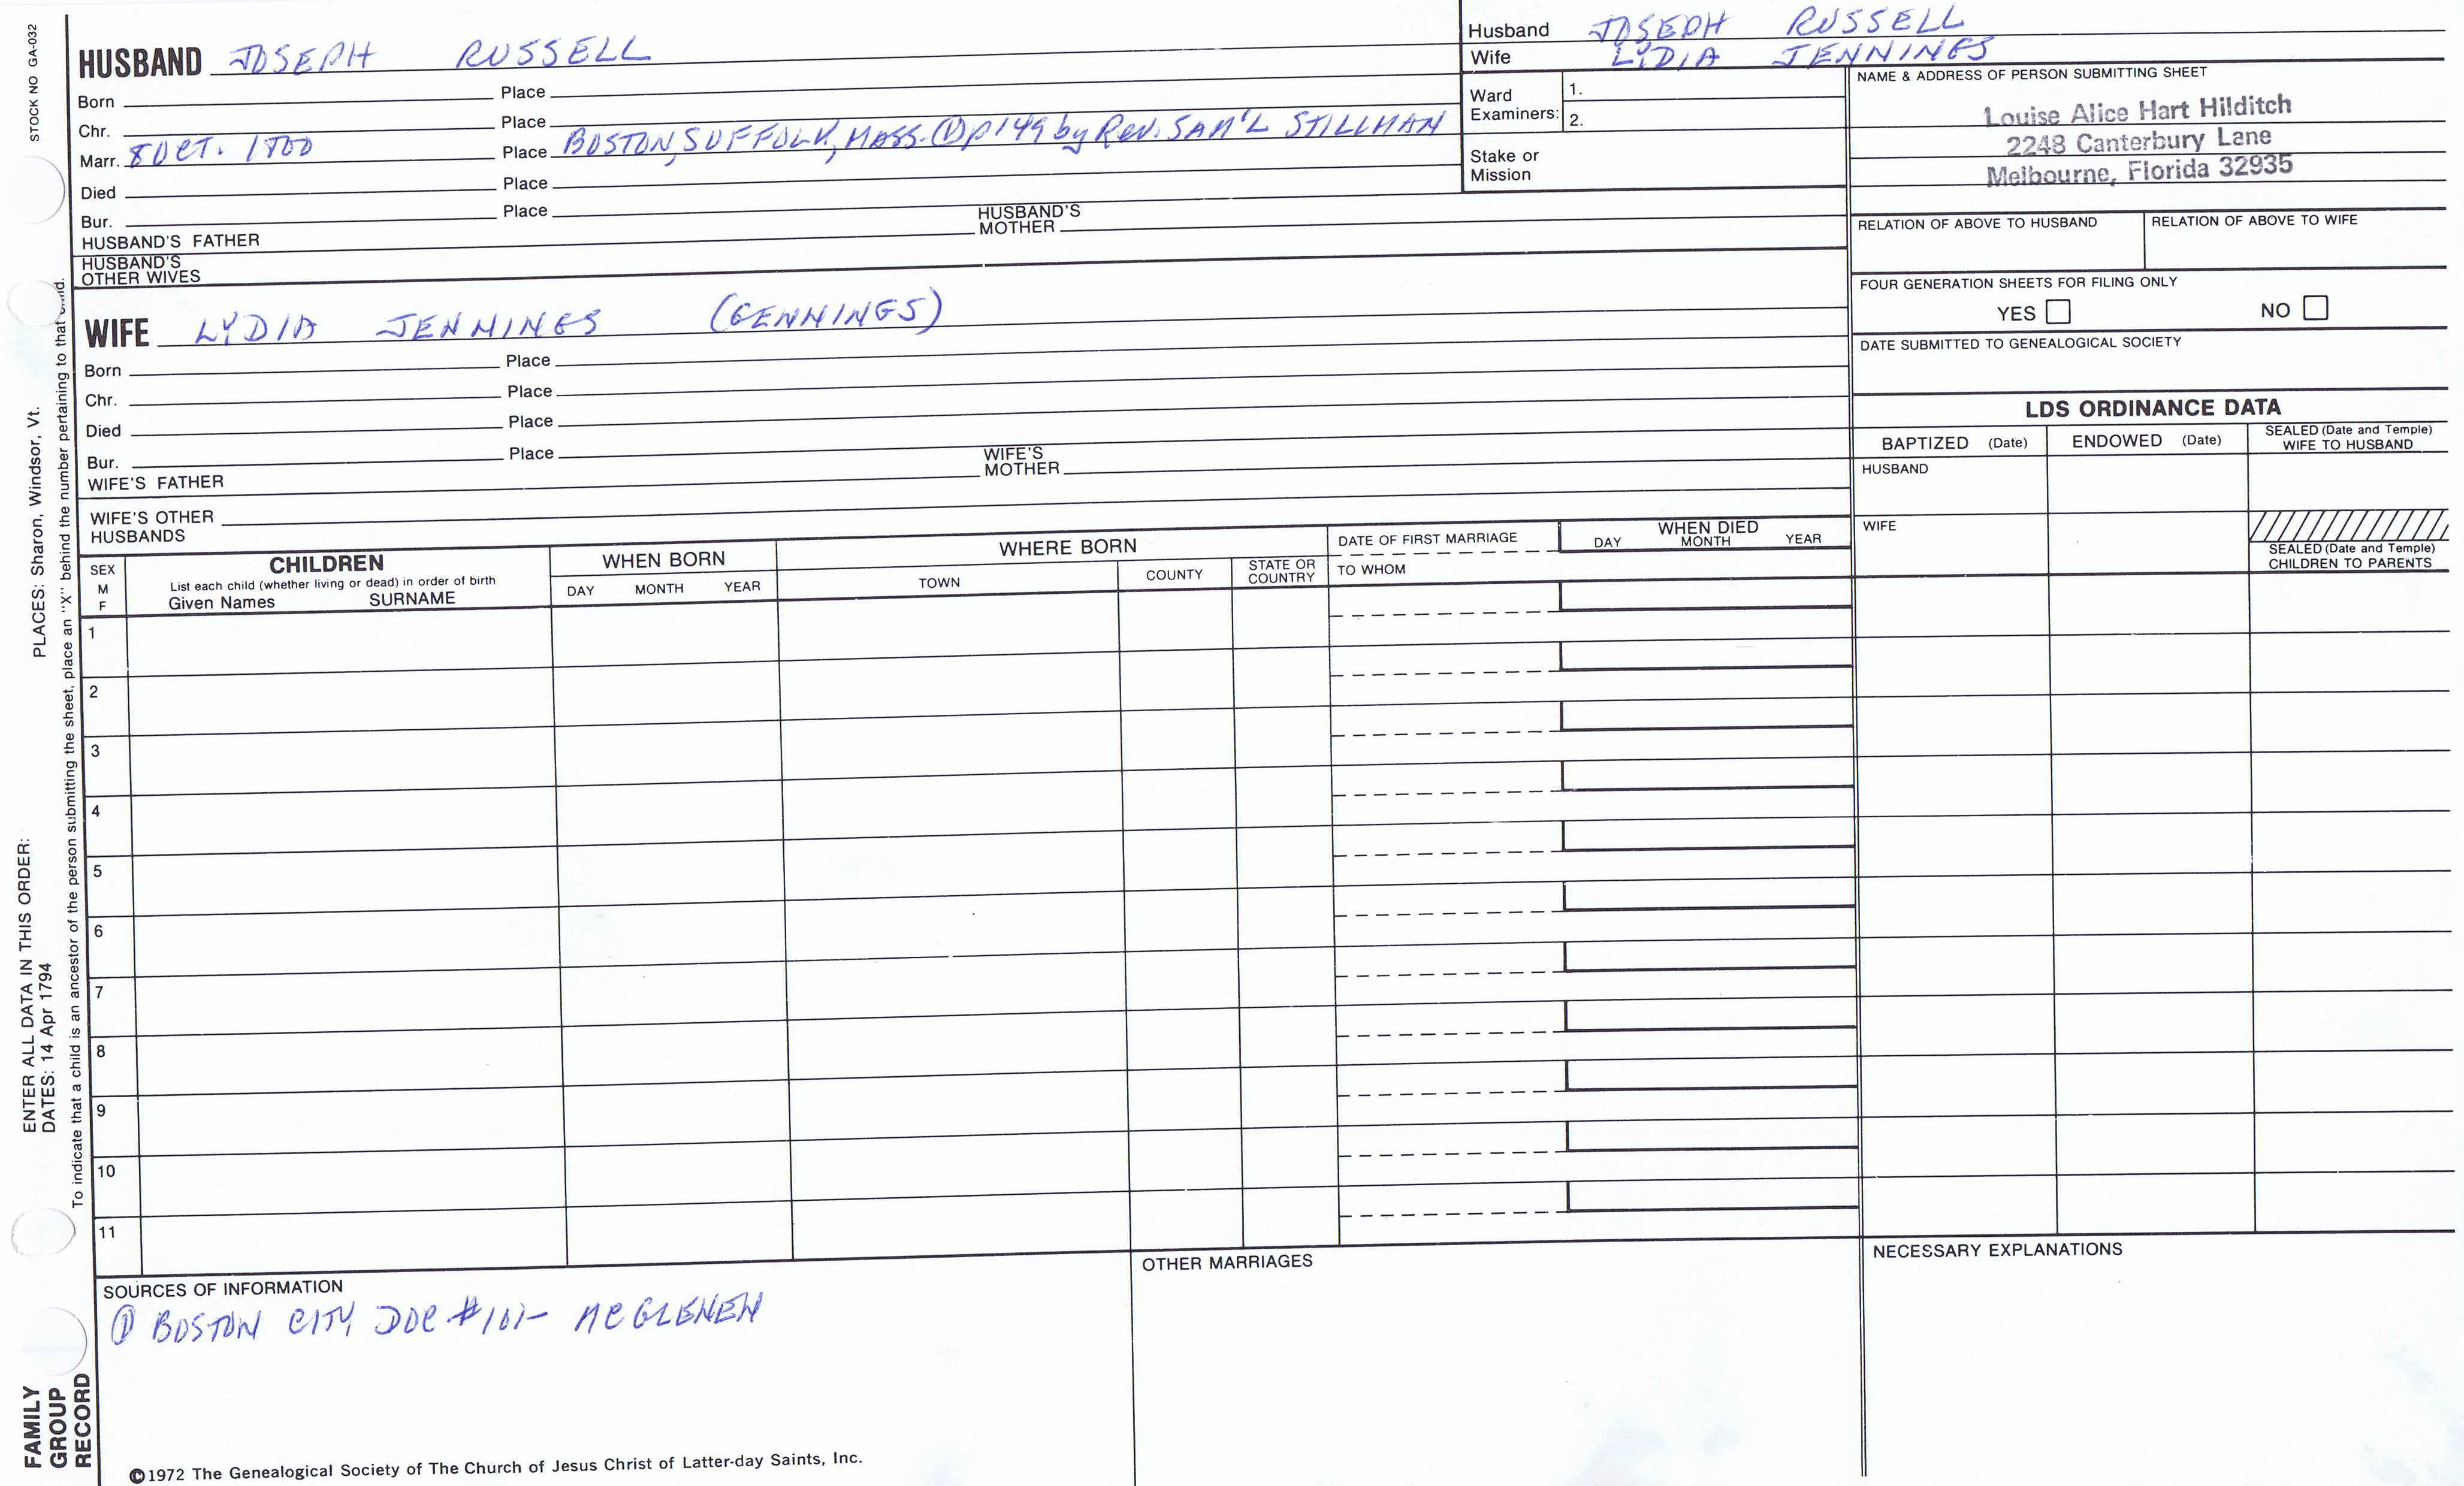 STOCK NO GA-032
HUSBAND JOSEPH RUSSELL
Born Place
Chr. Place
Marr. 8 OCT. 1800 Place BOSTON, SUFFOLK, MASS. ① p149 by Rev. SAM'L STILLMAN
Died Place
Bur. Place
HUSBAND'S FATHER HUSBAND'S MOTHER
HUSBAND'S
OTHER WIVES
Husband JOSEPH RUSSELL
Wife LYDIA JENNINGS
Ward
Examiners: 1.
2.
Stake or
Mission
NAME & ADDRESS OF PERSON SUBMITTING SHEET
Louise Alice Hart Hilditch
2248 Canterbury Lane
Melbourne, Florida 32935
RELATION OF ABOVE TO HUSBAND RELATION OF ABOVE TO WIFE
FOUR GENERATION SHEETS FOR FILING ONLY
YES NO
DATE SUBMITTED TO GENEALOGICAL SOCIETY
WIFE LYDIA JENNINGS (GENNINGS)
Born Place
Chr. Place
Died Place
Bur. Place
WIFE'S FATHER WIFE'S MOTHER
WIFE'S OTHER
HUSBANDS
LDS ORDINANCE DATA
BAPTIZED (Date) ENDOWED (Date) SEALED (Date and Temple)
WIFE TO HUSBAND
HUSBAND
WIFE
SEALED (Date and Temple)
CHILDREN TO PARENTS
SEX
M
F
CHILDREN
List each child (whether living or dead) in order of birth
Given Names SURNAME
WHEN BORN
DAY MONTH YEAR
WHERE BORN
TOWN COUNTY STATE OR
COUNTRY
DATE OF FIRST MARRIAGE
TO WHOM
WHEN DIED
DAY MONTH YEAR
1
2
3
4
5
6
7
8
9
10
11
SOURCES OF INFORMATION
① BOSTON CITY DOC #101- MCGLENEN
OTHER MARRIAGES
NECESSARY EXPLANATIONS
©1972 The Genealogical Society of The Church of Jesus Christ of Latter-day Saints, Inc.
ENTER ALL DATA IN THIS ORDER:
DATES: 14 Apr 1794 PLACES: Sharon, Windsor, Vt.
To indicate that a child is an ancestor of the person submitting the sheet, place an "X" behind the number pertaining to that child.
FAMILY
GROUP
RECORD